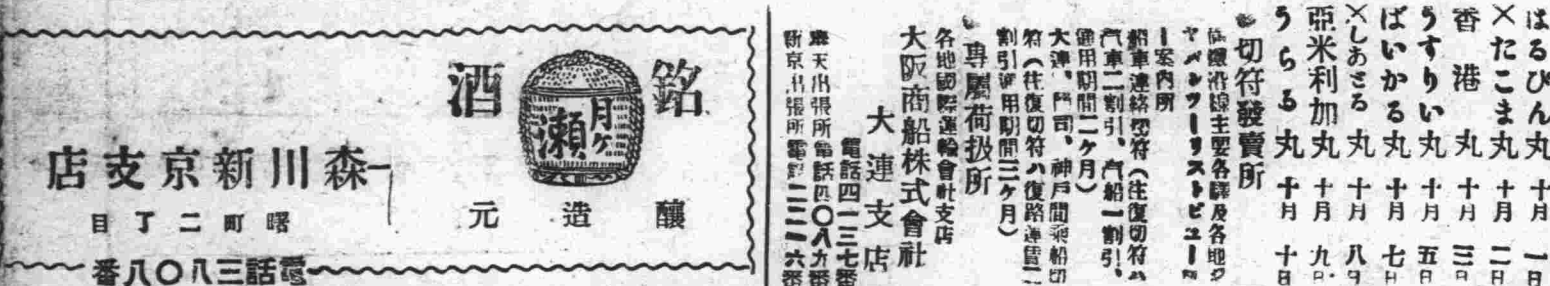 はるぴん丸 十月 一日
×たこま丸 十月 二日
香港丸 十月 三日
うすりい丸 十月 五日
ばいかる丸 十月 七日
×しあさる丸 十月 八日
亞米利加丸 十月 九日
うらる丸 十月 十日
切符發賣所
滿鐵沿線主要各驛及各地ジ
ヤパンツーリストビユーロ
ー案内所
船車連絡切符(往復切符ハ
汽車二割引、汽船一割引、
通用期間二ヶ月)
大連、門司、神戸間乘船切
符(往復切符ハ復路運賃二
割引通用期間三ヶ月)
專屬荷扱所
各地國際運輸會社支店
大阪商船株式會社
大連支店
電話四一三七番
奉天出張所電話四〇八九番
新京出張所電話二二一六番
銘酒
月ヶ瀬
釀造元
森川新京支店
曙町二丁目
電話三八〇八番